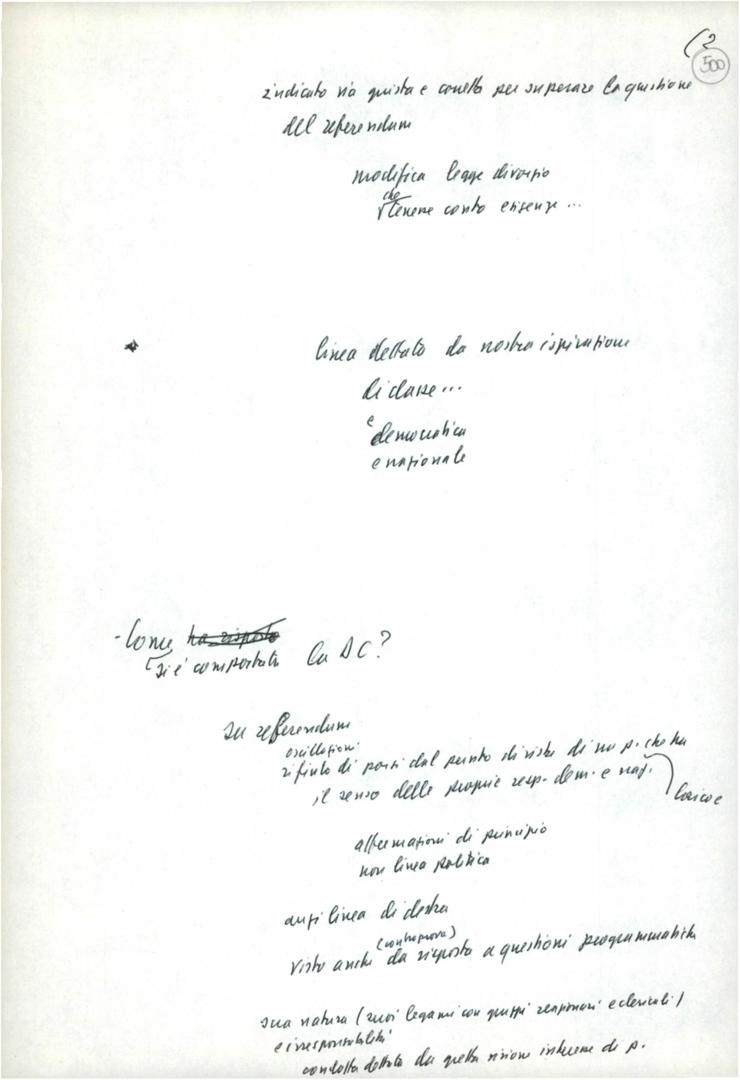 (2
500
indicato via giusta e corretta per superare la questione
del referendum
modifica legge divorzio
che
tenene conto esigenze ...
linea dettata da nostra ispirazione
di classe ...
e
democratica
e nazionale
- Come ha risposto
si è comportata la DC?
su referendum
oscillazioni
rifiuto di porsi dal punto di vista di un p. che ha
il senso delle proprie resp. dem. e naz.
laico e
affermazioni di principio
non linea politica
anzi linea di destra
(controprova)
visto anche da risposta a questioni programmatiche
sua natura (suoi legami con gruppi reazionari e clericali)
e irresponsabilità
condotta dettata da gretta visione interesse di p.